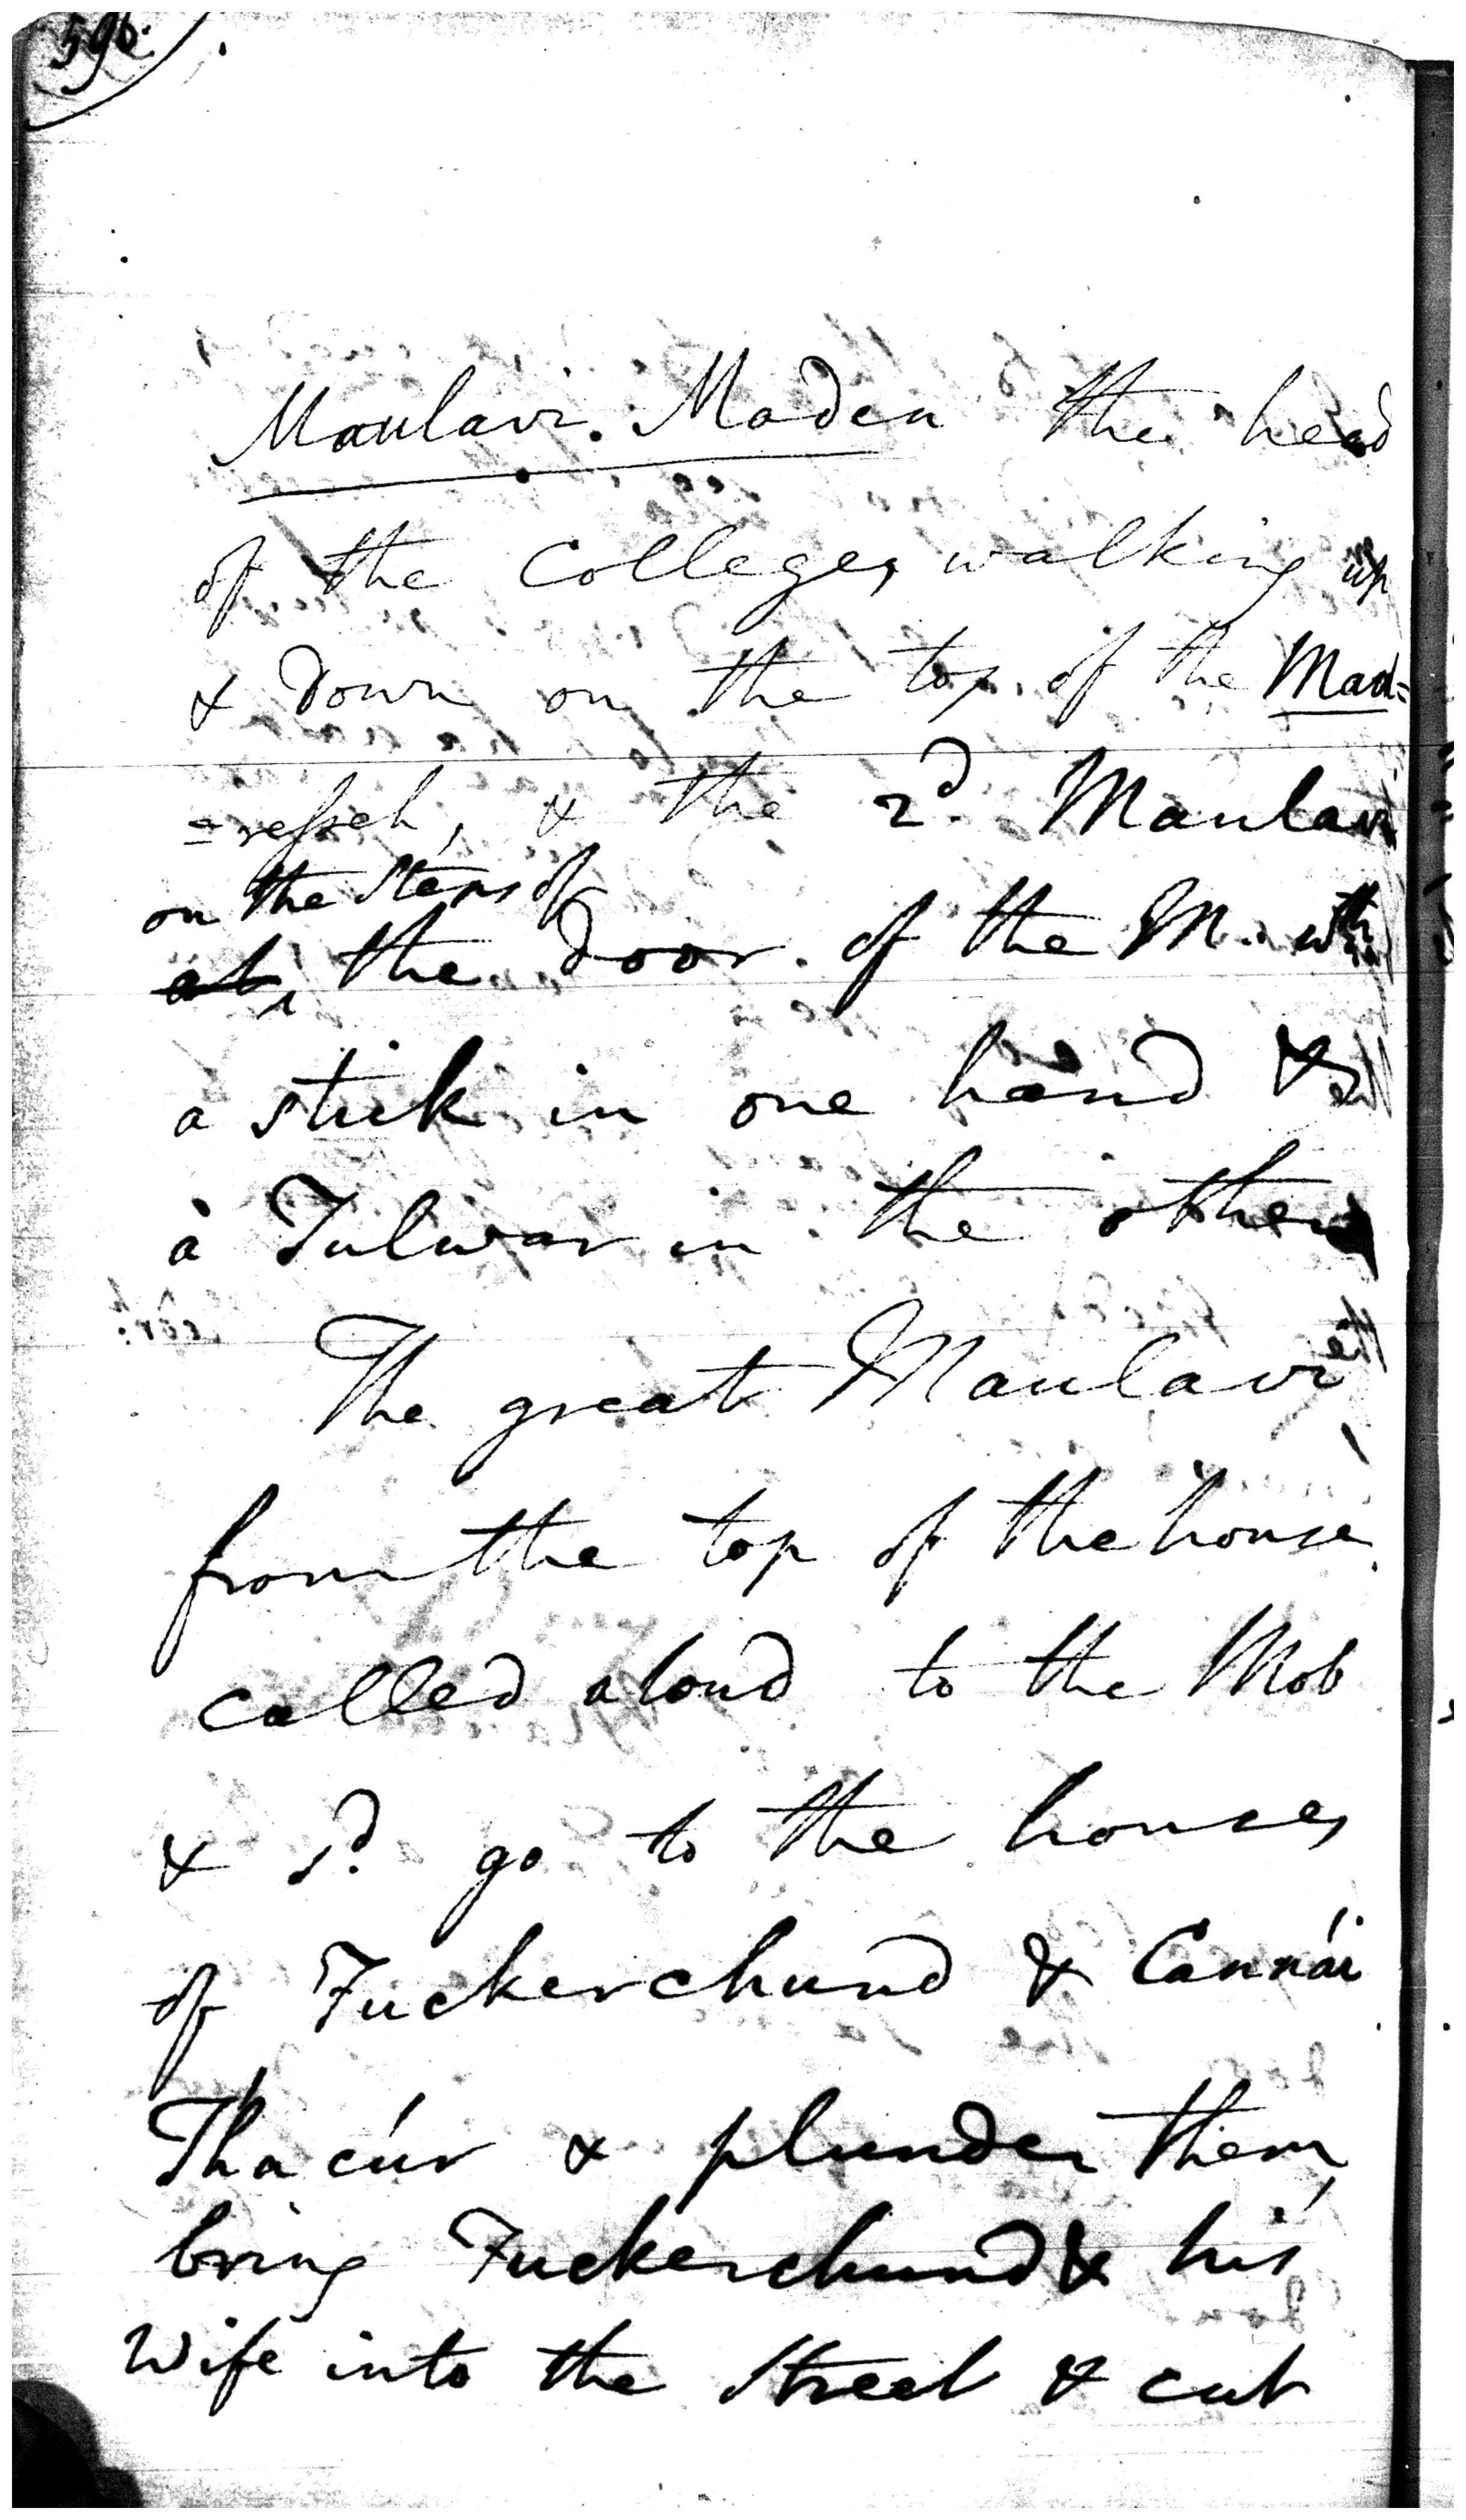 596.
Maulavi. Maden the head
of the College, walking up
& down on the top of the Mad=
=resseh, & the 2d. Maulavi
on the steps of
at the door of the M. wth
a stick in one hand &
a Tulwar in the other
The great Maulavi
from the top of the house
called aloud to the Mob
& sd. go to the houses
of Tuckerchund & Cannái
Thacúr & plunder them,
bring Tuckerchund & his
wife into the Street & cut